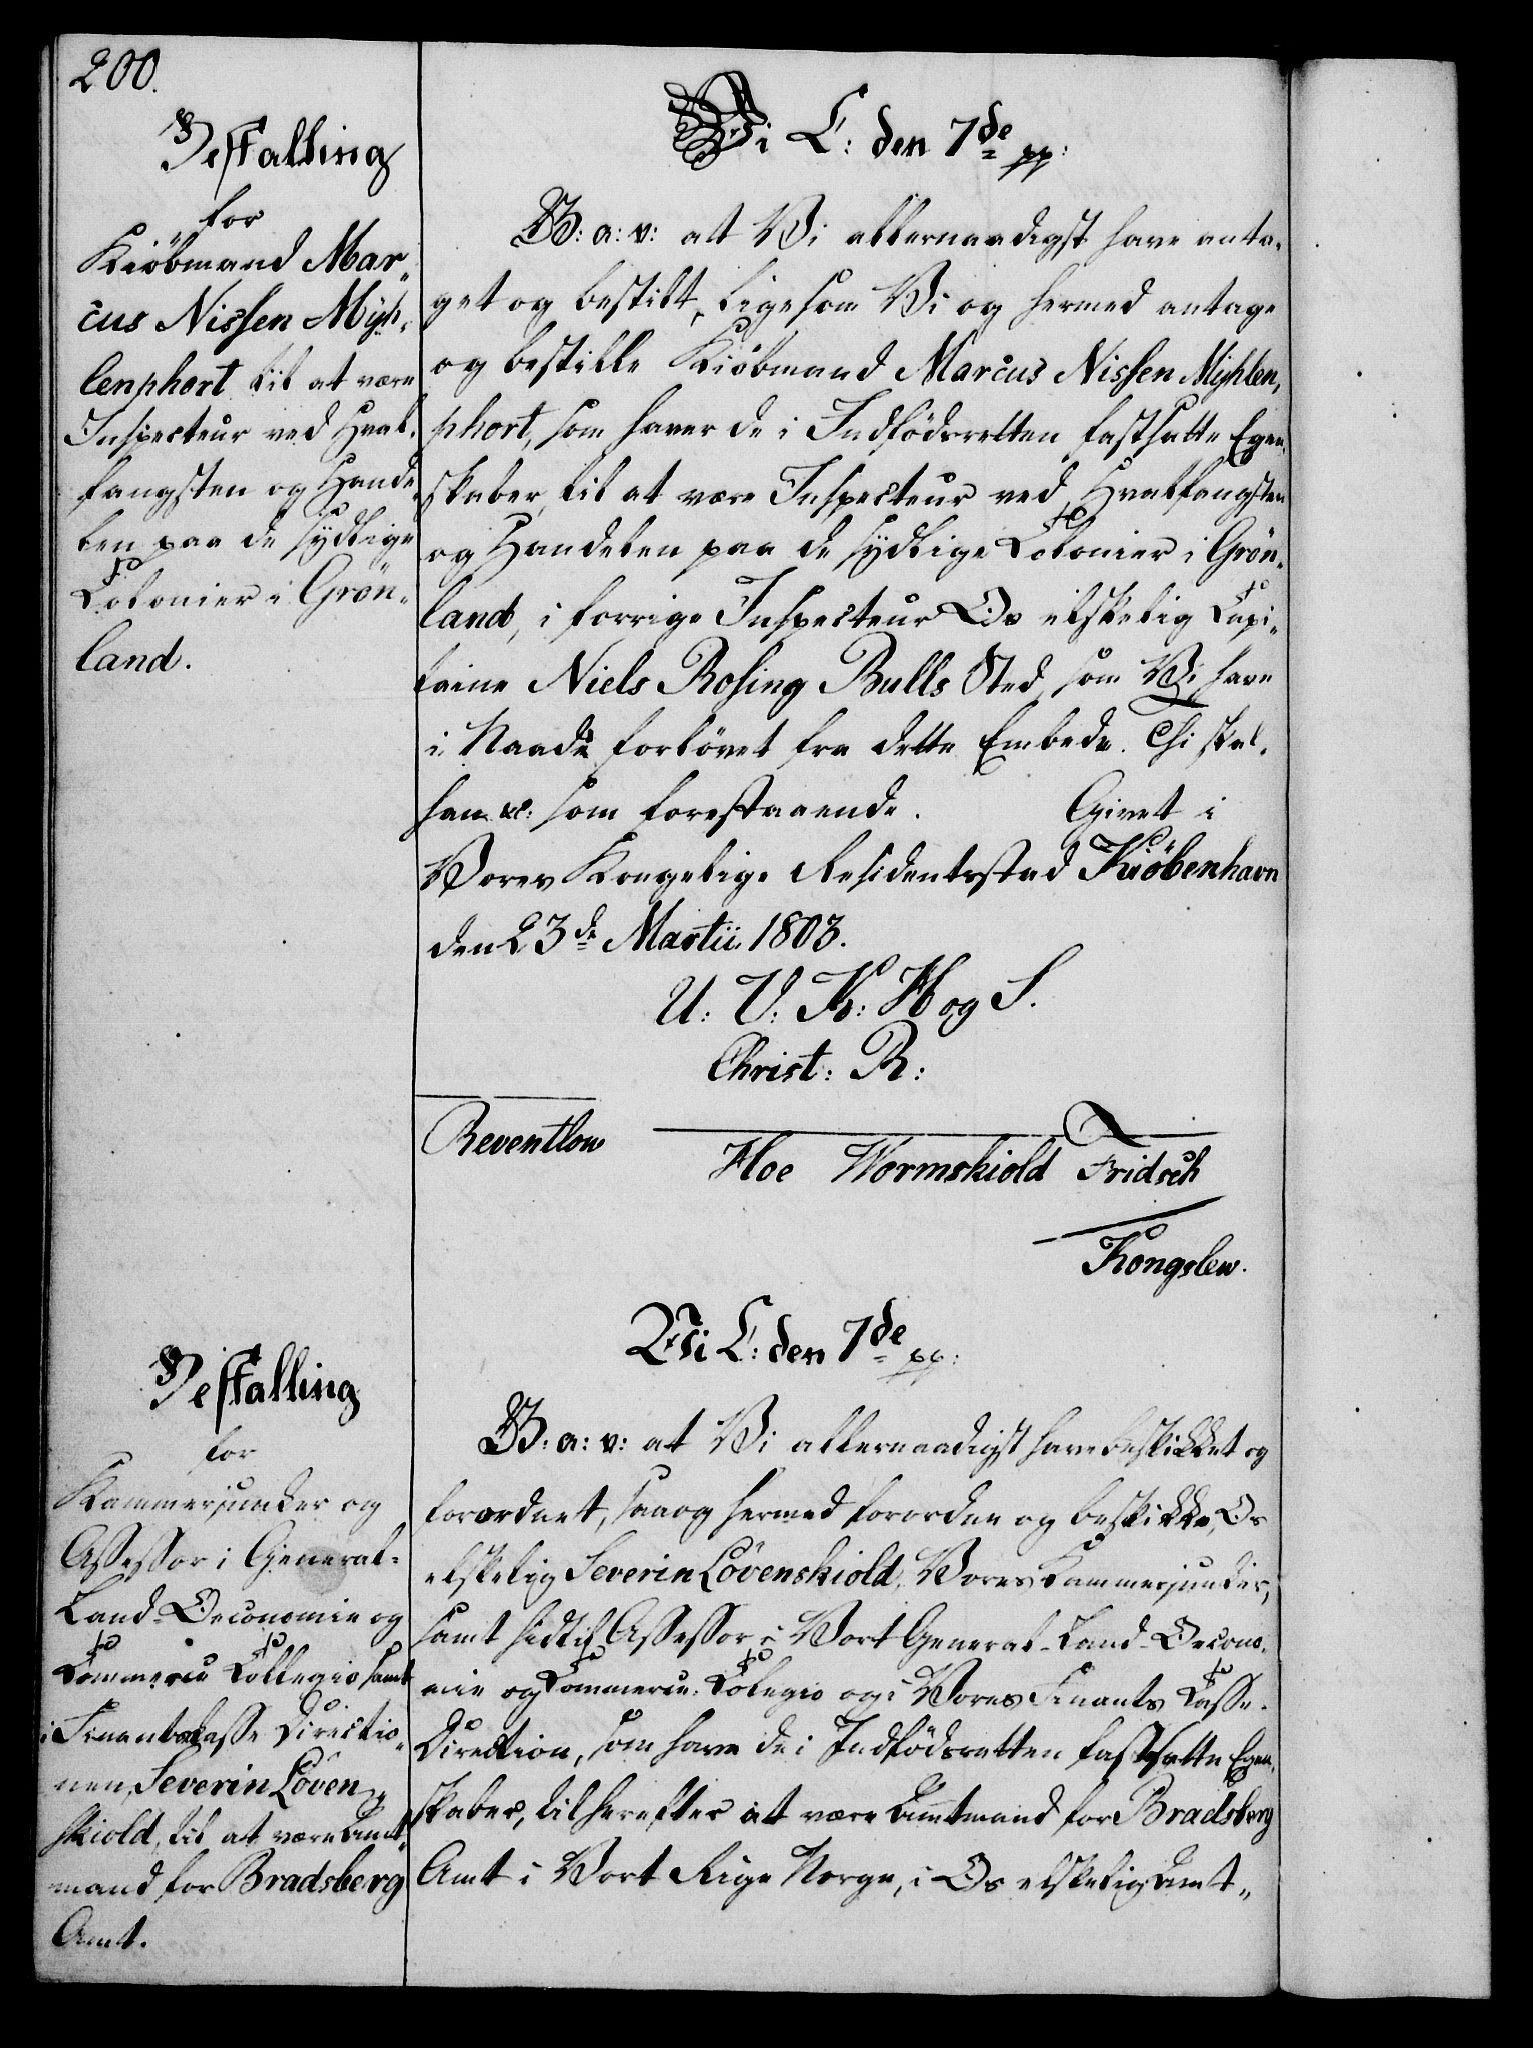 200.
Bestalling
for
Kiöbmand Mar„
cus Nissen Mÿh„
lenphort til at være
Inspecteur ved Hval„
fangsten og Hande„
len paa de sydlige
Colonier i Grön„
land.
Vi C: den 7de pp:
G: a: v: at Vi allernaadigst have anta„
get og bestilt, ligesom Vi og hermed antage
og bestille Kiöbmand Marcus Nissen Mÿhlen„
phort, som haver de i Indfödsretten fastsatte Egen„
skaber, til at være Inspecteur ved Hvalfangsten
og Handelen paa de sydlige Colonier i Grön„
land, i forrige Inspecteur Os elskelig Capi„
taine Niels Rosing Bulls Sted, som Vi have
i Naade forlövet fra dette Embede. Thi skal
han &c: som forestaaende. Givet i
Vores Kongelige Residentsstad Kiöbenhavn
den 23de Martii 1803.
U: V: K: H og S.
Christ: R:
Reventlow
Hoe Wormskiold Fridsch
Kongslew.
Bestalling
for
Kammerjunker og
Assessor i General-
Land-Oeconomie og
Commerce Collegio samt
i Finantskasse Directio„
nen, Severin Löven„
skiold, til at være Amt„
mand for Bradsberg
Amt.
Vi C: den 7de pp:
G: a: v: at Vi allernaadigst have beskikket og
forordnet, saa og hermed forordne og beskikke, Os
elskelig Severin Lövenskiold, Vores Kammerjunker,
samt hidtil Assessor i Vort General-Land-Oecono„
mie og Commerce-Colegio og i Vores Finants Casse-
Direction, som have de i Indfödsretten fastsatte Egen„
skaber, til herefter at være Amtmand for Bradsberg
Amt i Vort Rige Norge, i Os elskelig Amt„